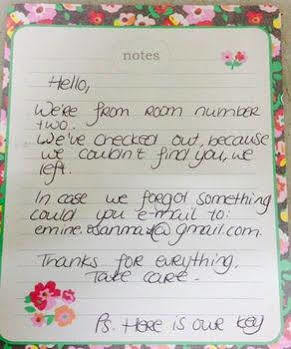 notes
Hello,
We're from room number
two.
We've checked out, because
we couldn't find you, we
left.
In case we forgot something
could you e-mail to:
@gmail.com.
Thanks for everything.
Take care.
Ps. Here is our key